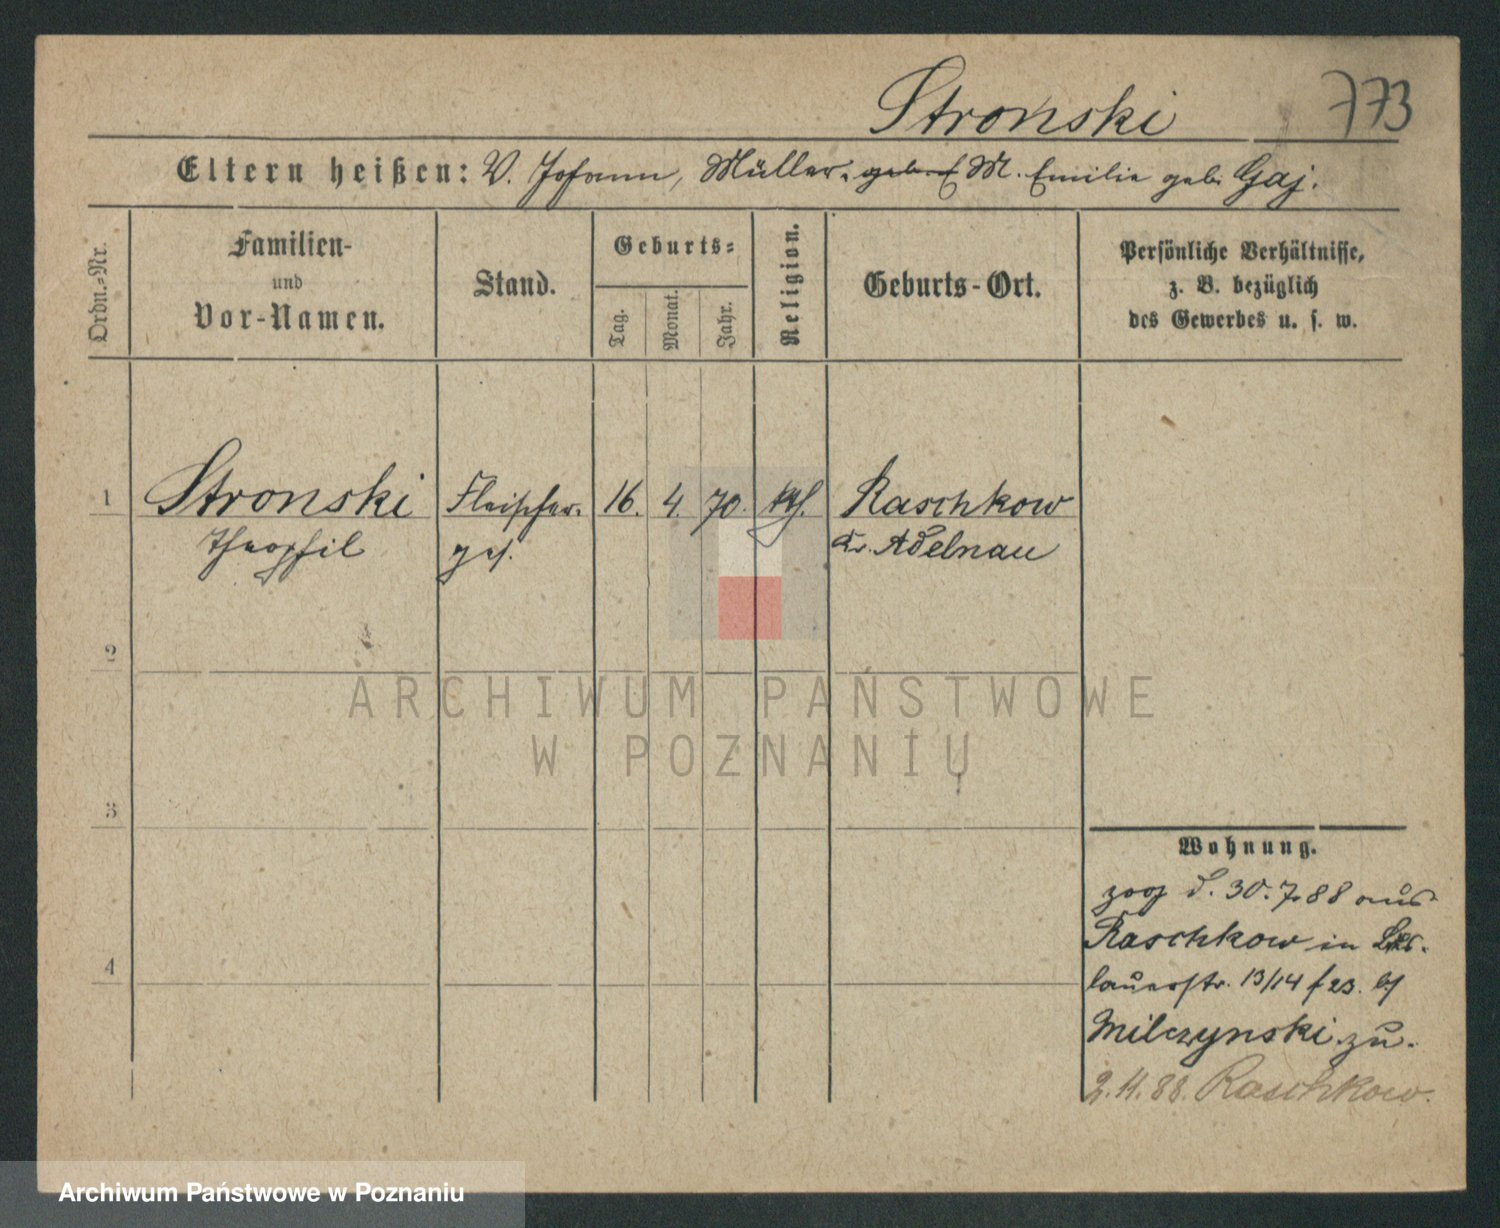 Stronski 773
Eltern heißen: V. Johann, Müller, geb. M. Emilie geb. Gaj.
Ordn.-Nr.
Familien-
und
Vor-Namen.
Stand.
Geburts-
Tag.
Monat.
Jahr.
Religion.
Geburts-Ort.
Persönliche Verhältnisse,
z. B. bezüglich
des Gewerbes u. s. w.
1 Stronski Fleischer- 16. 4. 70. kth. Raschkow
Theophil ges. Kr. Adelnau
2
3
4
Wohnung.
zog d. 30.7.88 aus
Raschkow in Bres-
lauerstr. 13/14 bei
Milczynski zu.
2.11.88. Raschkow.
ARCHIWUM PAŃSTWOWE
W POZNANIU
Archiwum Państwowe w Poznaniu